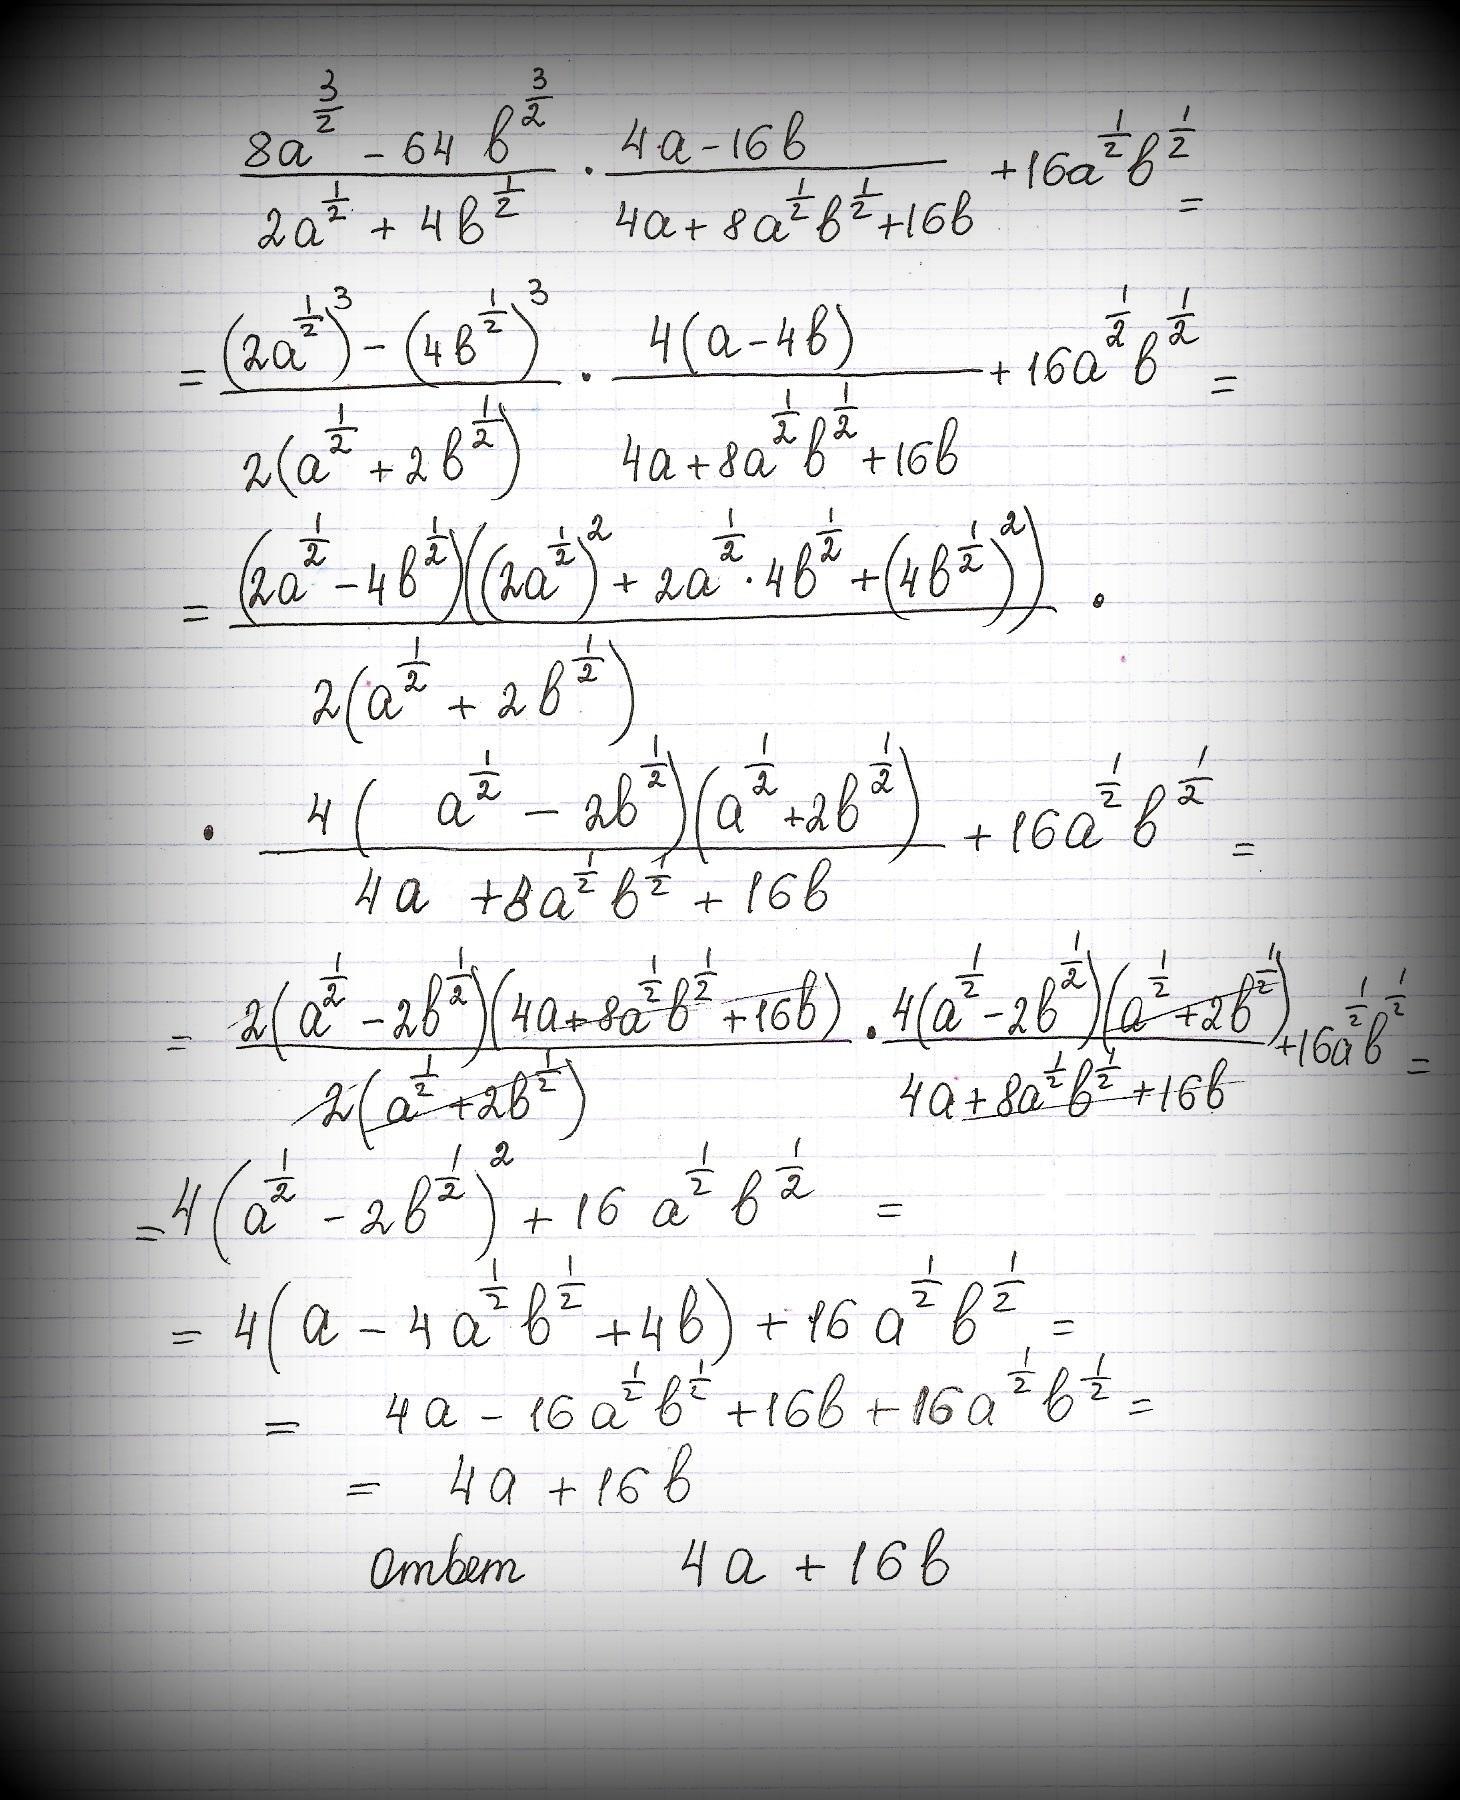 (8a^(3/2) - 64в^(3/2))/(2a^(1/2) + 4в^(1/2)) · (4a-16в)/(4a+8a^(1/2)в^(1/2)+16в) +16a^(1/2)в^(1/2) =
= ((2a^(1/2))^3 - (4в^(1/2))^3)/(2(a^(1/2) + 2в^(1/2))) · (4(a-4в))/(4a+8a^(1/2)в^(1/2)+16в) + 16a^(1/2)в^(1/2) =
= ((2a^(1/2) - 4в^(1/2))((2a^(1/2))^2 + 2a^(1/2)·4в^(1/2) + (4в^(1/2))^2))/(2(a^(1/2) + 2в^(1/2))) ·
· (4(a^(1/2) - 2в^(1/2))(a^(1/2)+2в^(1/2)))/(4a +8a^(1/2)в^(1/2) + 16в) + 16a^(1/2)в^(1/2) =
= (2(a^(1/2) - 2в^(1/2))(4a+8a^(1/2)в^(1/2)+16в))/(2(a^(1/2)+2в^(1/2))) · (4(a^(1/2)-2в^(1/2))(a^(1/2)+2в^(1/2)))/(4a+8a^(1/2)в^(1/2)+16в) +16a^(1/2)в^(1/2) =
= 4(a^(1/2) - 2в^(1/2))^2 + 16 a^(1/2) в^(1/2) =
= 4(a - 4a^(1/2)в^(1/2) + 4в) + 16a^(1/2)в^(1/2) =
= 4a - 16a^(1/2)в^(1/2) + 16в + 16a^(1/2)в^(1/2) =
= 4a + 16в
ответ 4a + 16в